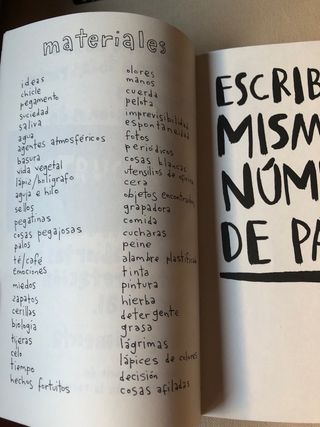 materiales
ideas
chicle
pegamento
suciedad
saliva
agua
agentes atmosféricos
basura
vida vegetal
lápiz/bolígrafo
aguja e hilo
sellos
pegatinas
cosas pegajosas
palos
té/café
emociones
miedos
zapatos
cerillas
biología
tijeras
celo
tiempo
hechos fortuitos
olores
manos
cuerda
pelota
imprevisibilidad
espontaneidad
fotos
periódicos
cosas blancas
utensilios de oficina
cera
objetos encontrados
grapadora
comida
cucharas
peine
alambre plastific
tinta
pintura
hierba
detergente
grasa
lágrimas
lápices de colores
decisión
cosas afiladas
ESCRIB
MISM
NÚM
DE PÁ